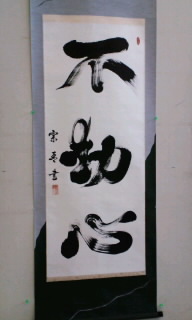 不動心
宗青書